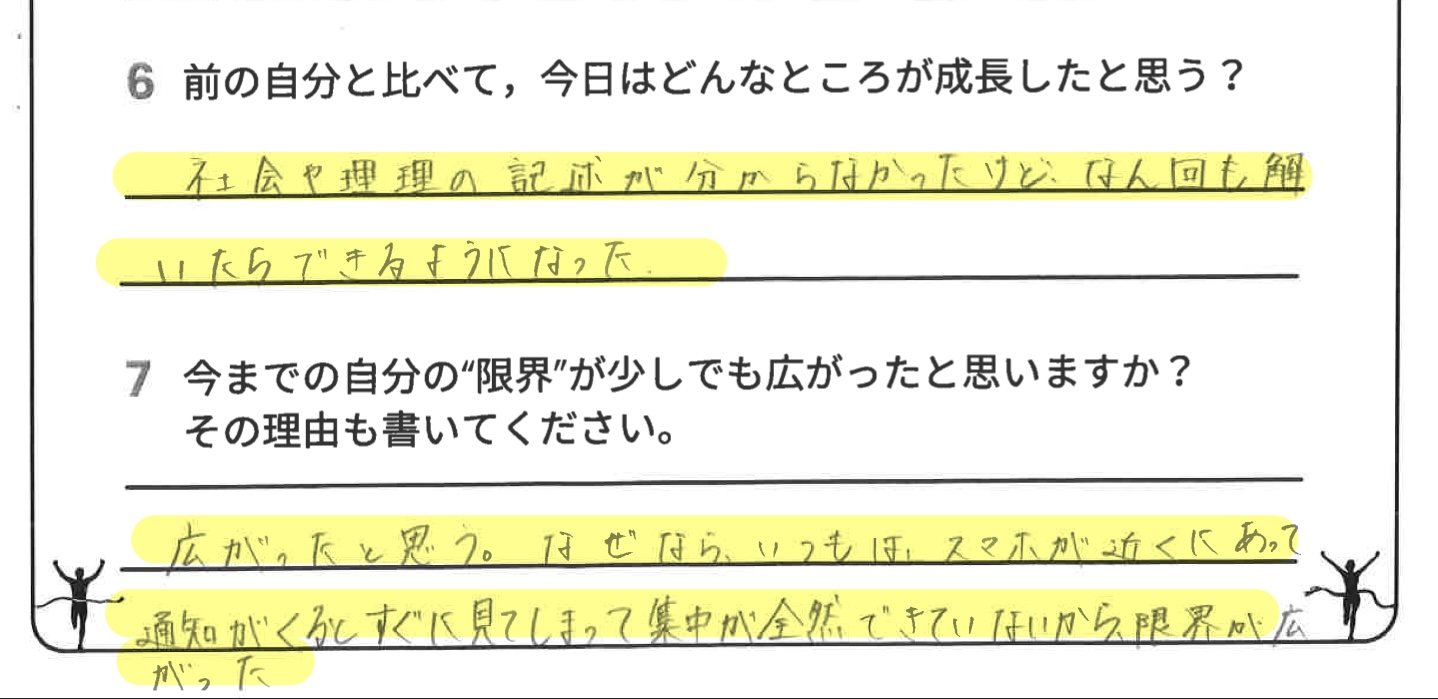 6 前の自分と比べて，今日はどんなところが成長したと思う？
社会や理理の記述が分からなかったけど、なん回も解
いたらできるようになった.
7 今までの自分の“限界”が少しでも広がったと思いますか？
その理由も書いてください。
広がったと思う。なぜなら、いつもは、スマホが近くにあって
通知がくるとすぐに見てしまって集中が全然できていないから、限界が広
がった